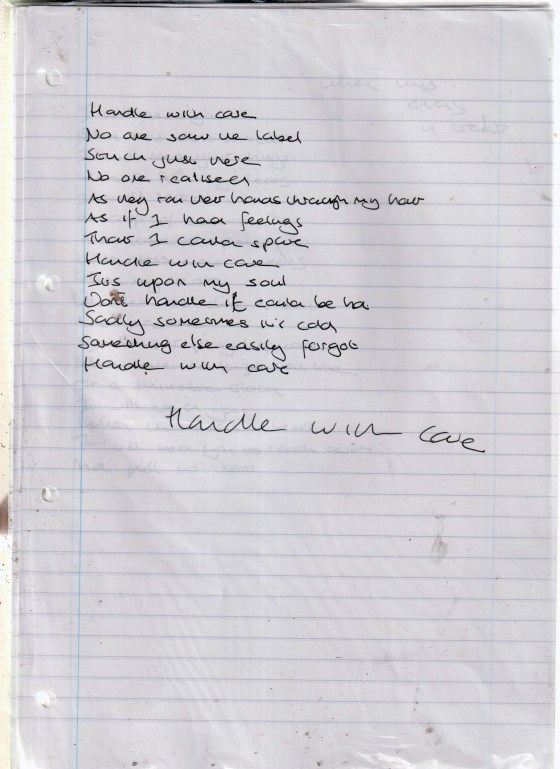 Handle with care
No one saw the label
Stuck just here
No one realised
As they ran their hands through my hair
As if I had feelings
That I could spare
Handle with care
Its upon my soul
Don't handle it could be hot
Sadly sometimes it's cold
Something else easily forgot
Handle with care
Handle with care